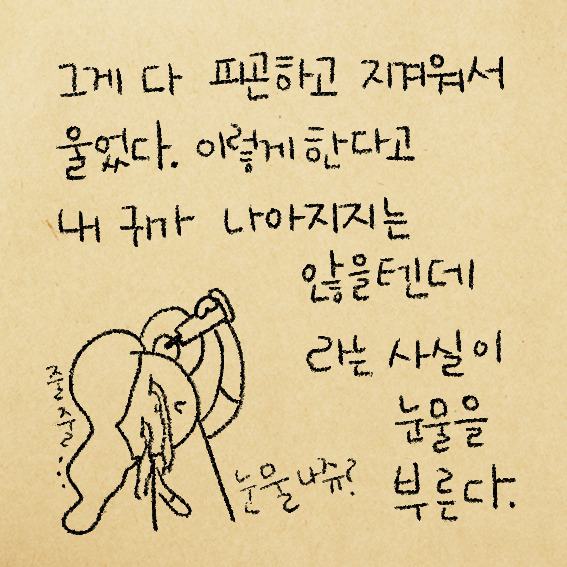 그게 다 피곤하고 지겨워서
울었다. 이렇게 한다고
내 귀가 나아지지는
않을텐데
라는 사실이
눈물을
부른다.
줄
줄...
눈물 나쥬?